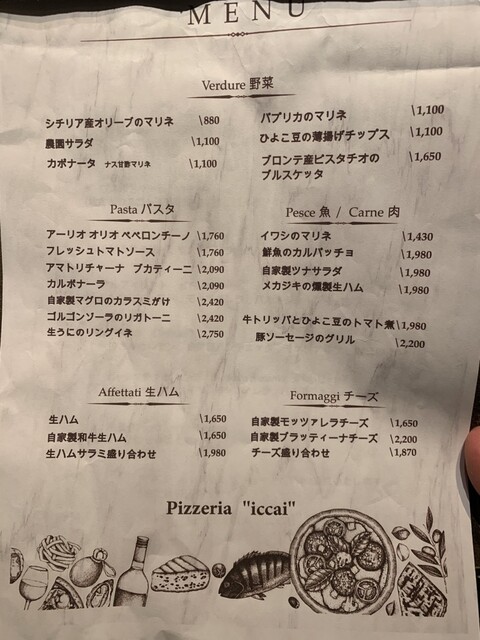 MENU
Verdure 野菜
シチリア産オリーブのマリネ \880
農園サラダ \1,100
カポナータ ナス甘酢マリネ \1,100
パプリカのマリネ \1,100
ひよこ豆の薄揚げチップス \1,100
ブロンテ産ピスタチオの
ブルスケッタ \1,650
Pasta パスタ
アーリオ オリオ ペペロンチーノ \1,760
フレッシュトマトソース \1,760
アマトリチャーナ ブカティーニ \2,090
カルボナーラ \2,090
自家製マグロのカラスミがけ \2,420
ゴルゴンゾーラのリガトーニ \2,420
生うにのリングイネ \2,750
Pesce 魚 / Carne 肉
イワシのマリネ \1,430
鮮魚のカルパッチョ \1,980
自家製ツナサラダ \1,980
メカジキの燻製生ハム \1,980
牛トリッパとひよこ豆のトマト煮 \1,980
豚ソーセージのグリル \2,200
Affettati 生ハム
生ハム \1,650
自家製和牛生ハム \1,650
生ハムサラミ盛り合わせ \1,980
Formaggi チーズ
自家製モッツァレラチーズ \1,650
自家製ブラッティーナチーズ \2,200
チーズ盛り合わせ \1,870
Pizzeria "iccai"